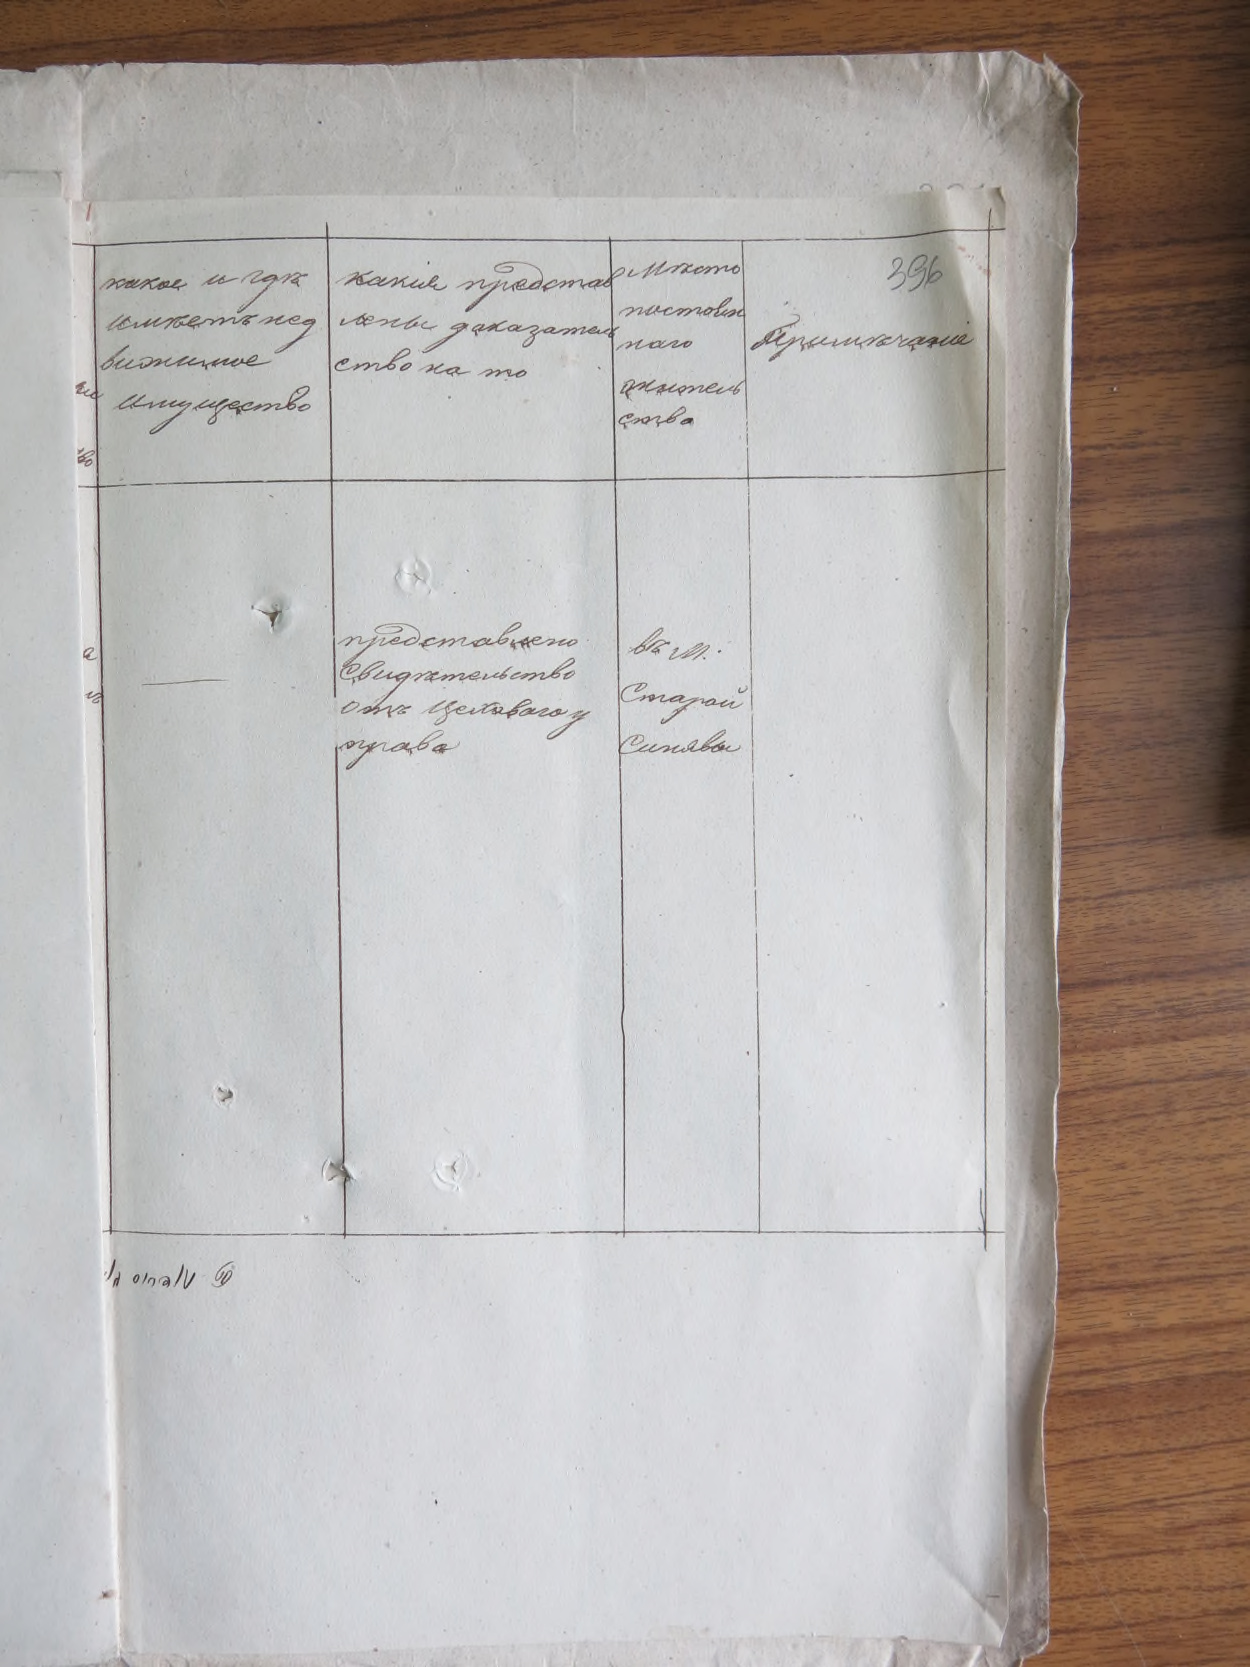 396
какое и гдѣ
имѣетъ нед
вижимое
имущество
какія представ
лены доказатель
ство на то
Мѣсто
постоян
наго
жительь
ства
Примѣчаніе
—
представлено
свидѣтельство
отъ Цеховаго у
права
въ м.
Старой
Синявы